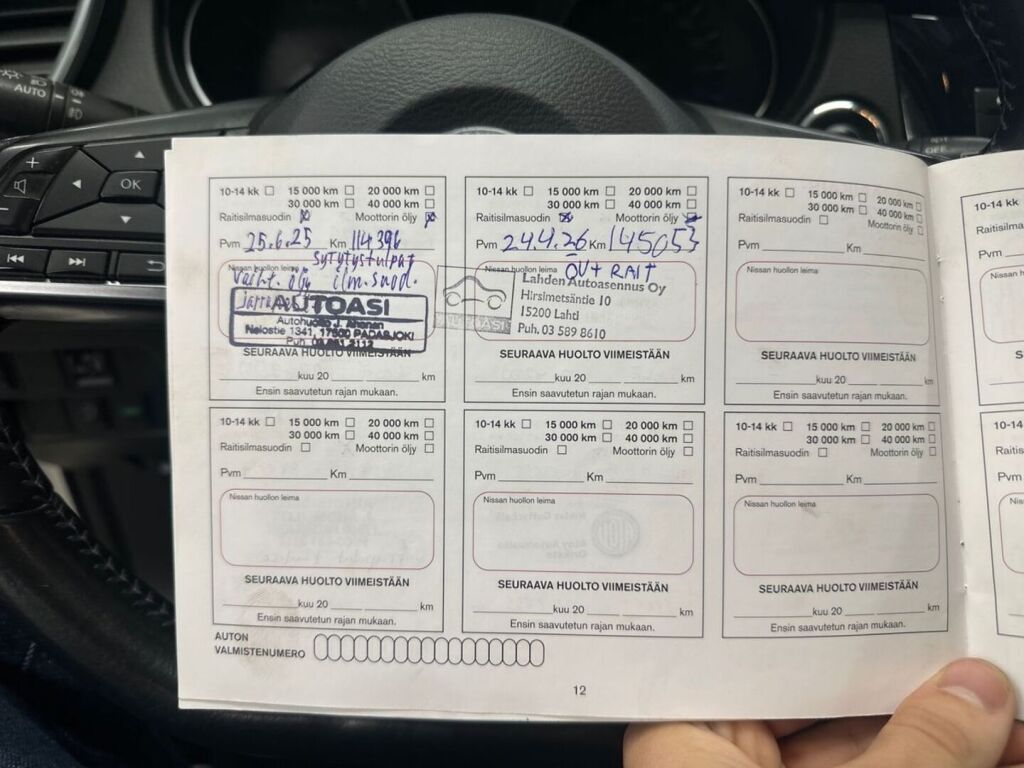 AUTO
OK
OFF
10-14 kk ☐ 15 000 km ☐ 20 000 km ☐
30 000 km ☐ 40 000 km ☐
Raitisilmasuodin ☒ Moottorin öljy ☒
Pvm 25.6.25 Km 114396
sytytystulpat
Nissan huollon leima
vaiht. öljy ilm.suod.
AUTOASI
Autohuolto J. Ahonen
Nelostie 1341, 17500 PADASJOKI
Puh.
SEURAAVA HUOLTO VIIMEISTÄÄN
kuu 20 km
Ensin saavutetun rajan mukaan.
10-14 kk ☐ 15 000 km ☐ 20 000 km ☐
30 000 km ☐ 40 000 km ☐
Raitisilmasuodin ☒ Moottorin öljy ☒
Pvm 24.4.26 Km 145053
Nissan huollon leima
ÖV+ RAIT
AUTOASI
Lahden Autoasennus Oy
Hirsimetsäntie 10
15200 Lahti
Puh. 03 589 8610
SEURAAVA HUOLTO VIIMEISTÄÄN
kuu 20 km
Ensin saavutetun rajan mukaan.
10-14 kk ☐ 15 000 km ☐ 20 000 km ☐
30 000 km ☐ 40 000 km ☐
Raitisilmasuodin ☐ Moottorin öljy ☐
Pvm Km
Nissan huollon leima
SEURAAVA HUOLTO VIIMEISTÄÄN
kuu 20 km
Ensin saavutetun rajan mukaan.
10-14 kk ☐ 15 000 km ☐ 20 000 km ☐
30 000 km ☐ 40 000 km ☐
Raitisilmasuodin ☐ Moottorin öljy ☐
Pvm Km
Nissan huollon leima
SEURAAVA HUOLTO VIIMEISTÄÄN
kuu 20 km
Ensin saavutetun rajan mukaan.
10-14 kk ☐ 15 000 km ☐ 20 000 km ☐
30 000 km ☐ 40 000 km ☐
Raitisilmasuodin ☐ Moottorin öljy ☐
Pvm Km
Nissan huollon leima
SEURAAVA HUOLTO VIIMEISTÄÄN
kuu 20 km
Ensin saavutetun rajan mukaan.
10-14 kk ☐ 15 000 km ☐ 20 000 km ☐
30 000 km ☐ 40 000 km ☐
Raitisilmasuodin ☐ Moottorin öljy ☐
Pvm Km
Nissan huollon leima
SEURAAVA HUOLTO VIIMEISTÄÄN
kuu 20 km
Ensin saavutetun rajan mukaan.
AUTON
VALMISTENUMERO
12
10-14 kk
Pvm